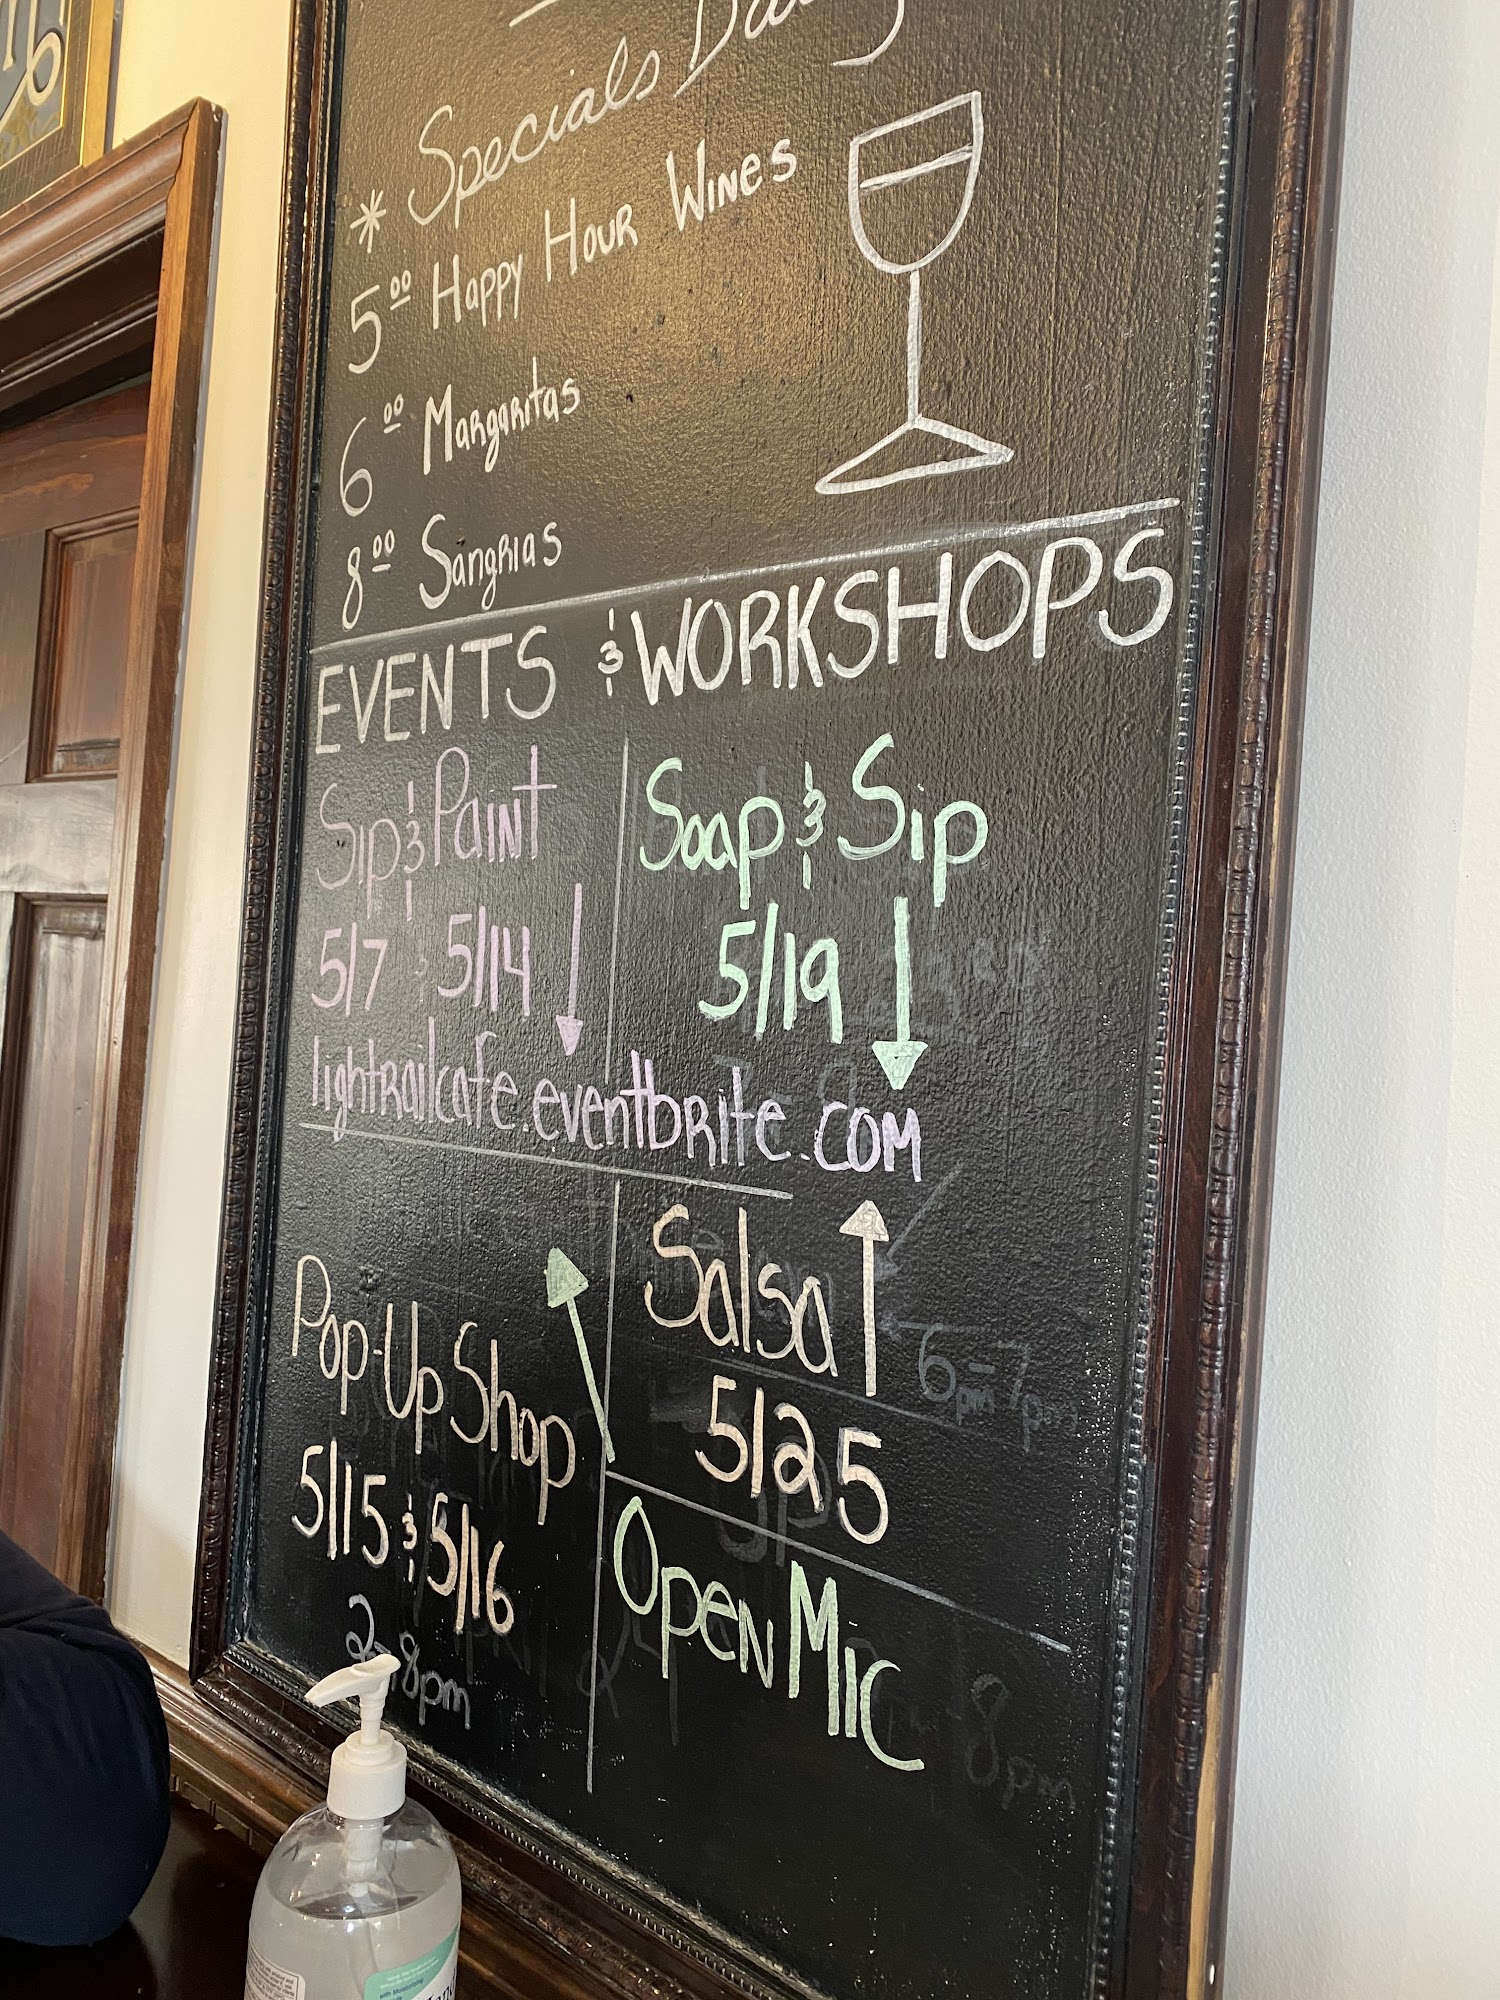 * Specials Daily
5.00 Happy Hour Wines
6.00 Margaritas
8.00 Sangrias
EVENTS & WORKSHOPS
Sip & Paint
5/7 & 5/14
Soap & Sip
5/19
lightrailcafe.eventbrite.com
Pop-Up Shop
5/15 & 5/16
2-8pm
Salsa
5/25
6pm-7pm
Open Mic
8pm